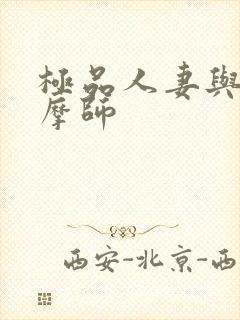 極品人妻與
摩師
西安-北京-西